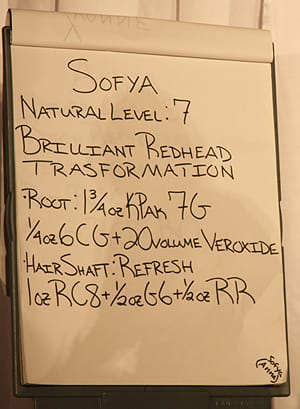 SOFYA
NATURAL LEVEL: 7
BRILLIANT REDHEAD
TRASFORMATION
·ROOT: 1 3/4 oz KPAK 7G
1/4 oz 6CG + 20 VOLUME VEROXIDE
·HAIR SHAFT: REFRESH
1oz RC8 + 1/2 oz G6 + 1/2 oz RR
SOFYA
(ANNA)